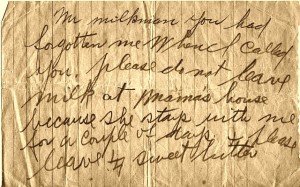 Mr milkman you had
forgotten me when I called
you, please do not leave
milk at mama's house
because she stay with me
for a couple of days please
leave sweet butter